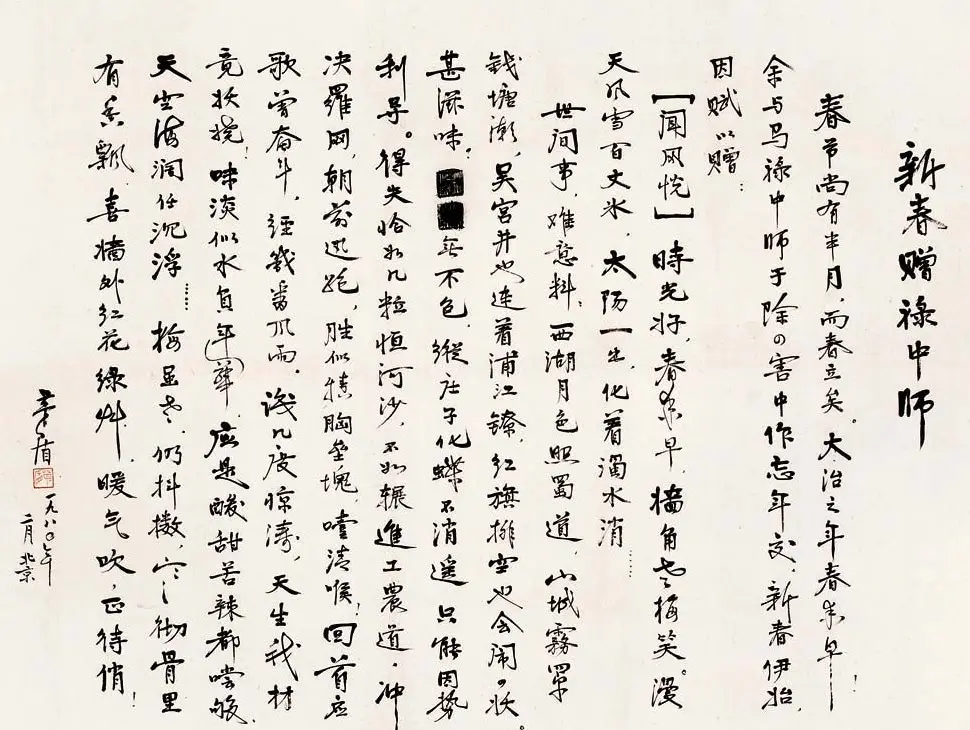 新春赠禄中师
春节尚有半月，而春立矣。大治之年春来早！
余与马禄中师于除四害中作忘年交，新春伊始，
因赋以赠：
【闻风悦】時光好，春来早，墙角老梅笑。漫
天风雪百丈冰，太阳一出，化着濁水消……
世间事，难意料，西湖月色照蜀道，山城霧罩
钱塘潮，吴宫井也连着浦江镣，红旗排空也会闹妖。
甚滋味？无不包，縱庄子化蝶不消遥，只能因势
利导。得失恰如几粒恒河沙，不如辗進工農道，冲
决羅网，朝前迅跑，胜似惊胸垒塊，嘻清喉！回首应
歌曾奋斗，經几番风雨，识几度惊涛，天生我材
竟妖娆！味淡似水负年华，应是酸甜苦辣都尝够，
天空海阔任沉浮……梅虽老，仍抖擞，心心彻骨里
有香飘，喜墙外红花绿艸，暖气吹，正待俏！
茅盾
一九八〇年
二月北京